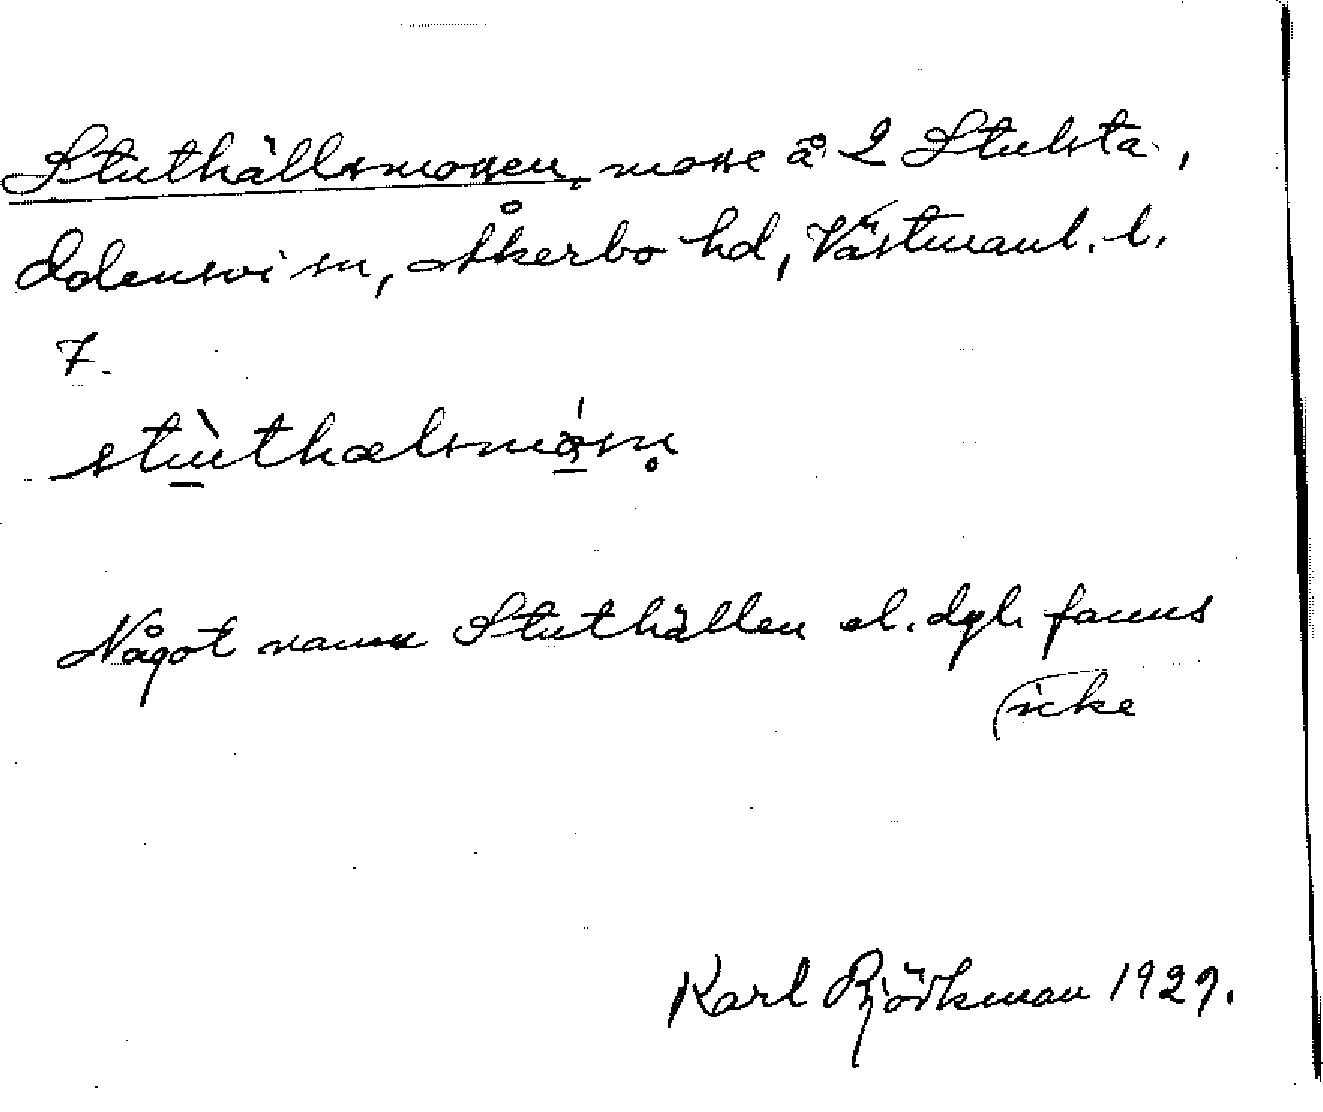 Stuthällsmossen, mosse å 2 Stulsta,
Odensvi sn, Åkerbo hd, Västmanl. l.
7.
stùthælsmósn̥
Något namn Stuthällen el. dyl. fanns
icke
Karl Björkman 1929.